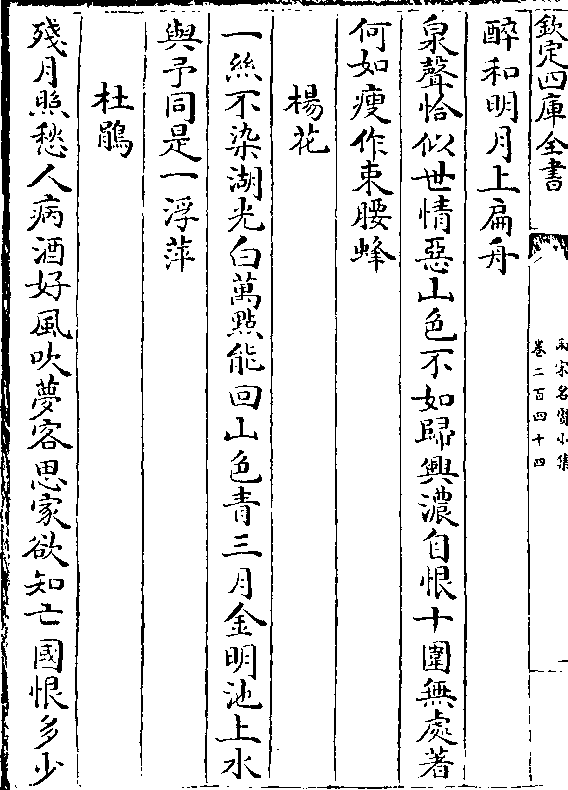 欽定四庫全書
兩宋名賢小集
卷二百四十四
醉和明月上扁舟
泉聲恰似世情惡山色不如歸興濃自恨十圍無處著
何如瘦作束腰蜂
楊花
一絲不染湖光白萬點能回山色青三月金明池上水
與予同是一浮萍
杜鵑
殘月照愁人病酒好風吹夢客思家欲知亡國恨多少